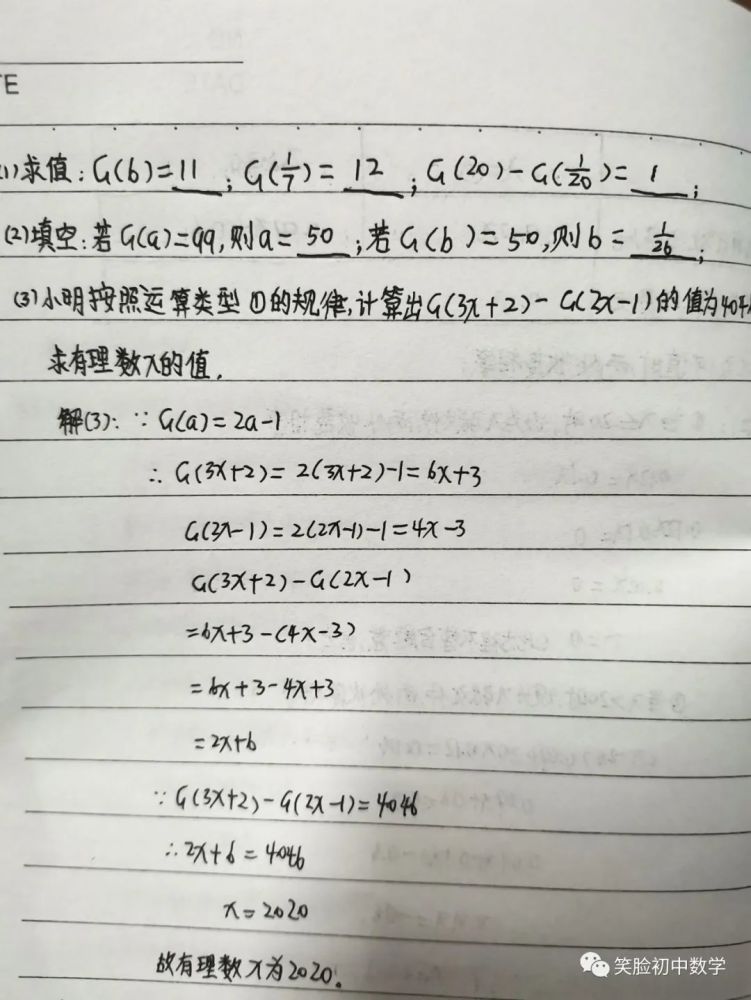 TE
(1)求值:G(6)=11;G(1/7)=12;G(20)-G(1/20)=1;
(2)填空:若G(a)=99,则a=50;若G(b)=50,则b=1/26;
(3)小明按照运算类型①的规律,计算出G(3x+2)-G(2x-1)的值为404
求有理数x的值.
解(3):∵G(a)=2a-1
∴G(3x+2)=2(3x+2)-1=6x+3
G(2x-1)=2(2x-1)-1=4x-3
G(3x+2)-G(2x-1)
=6x+3-(4x-3)
=6x+3-4x+3
=2x+6
∵G(3x+2)-G(2x-1)=4046
∴2x+6=4046
x=2020
故有理数x为2020。
笑脸初中数学